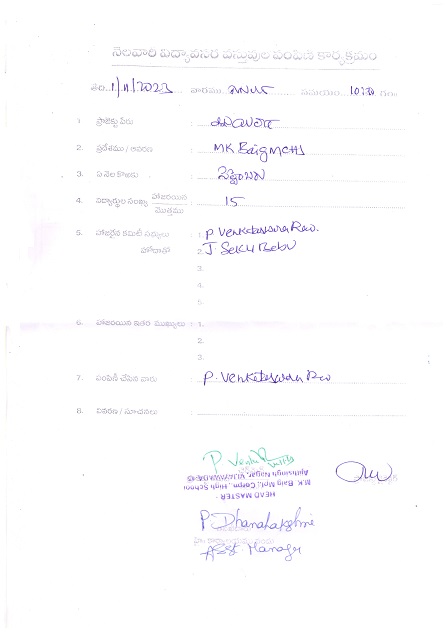 నెలవారి విద్యావసర వస్తువుల పంపిణి కార్యక్రమం
తేది..1/11/2023 వారము సమయం..10:30 గం॥
1. ప్రాజెక్టు పేరు :
2. ప్రదేశము / ఆవరణ : MK Baig MCHS
3. ఏ నెల కొఱకు :
4. విద్యార్థుల సంఖ్య హాజరయిన / మొత్తము : 15
5. హాజరైన కమిటీ సభ్యులు : 1. P Venkateswara Rao.
హోదాతో 2. J. Sekhu Babu
3.
4.
5.
6. హాజరయిన ఇతర ముఖ్యులు : 1.
2.
3.
7. పంపిణి చేసిన వారు : P. Venkateswara Rao
8. వివరణ / సూచనలు :
HEAD MASTER
M.K. Baig Mpl., Corpn., High School
Ajithsingh Nagar, VIJAYAWADA
P. Dhanalakshmi
Asst. Manager